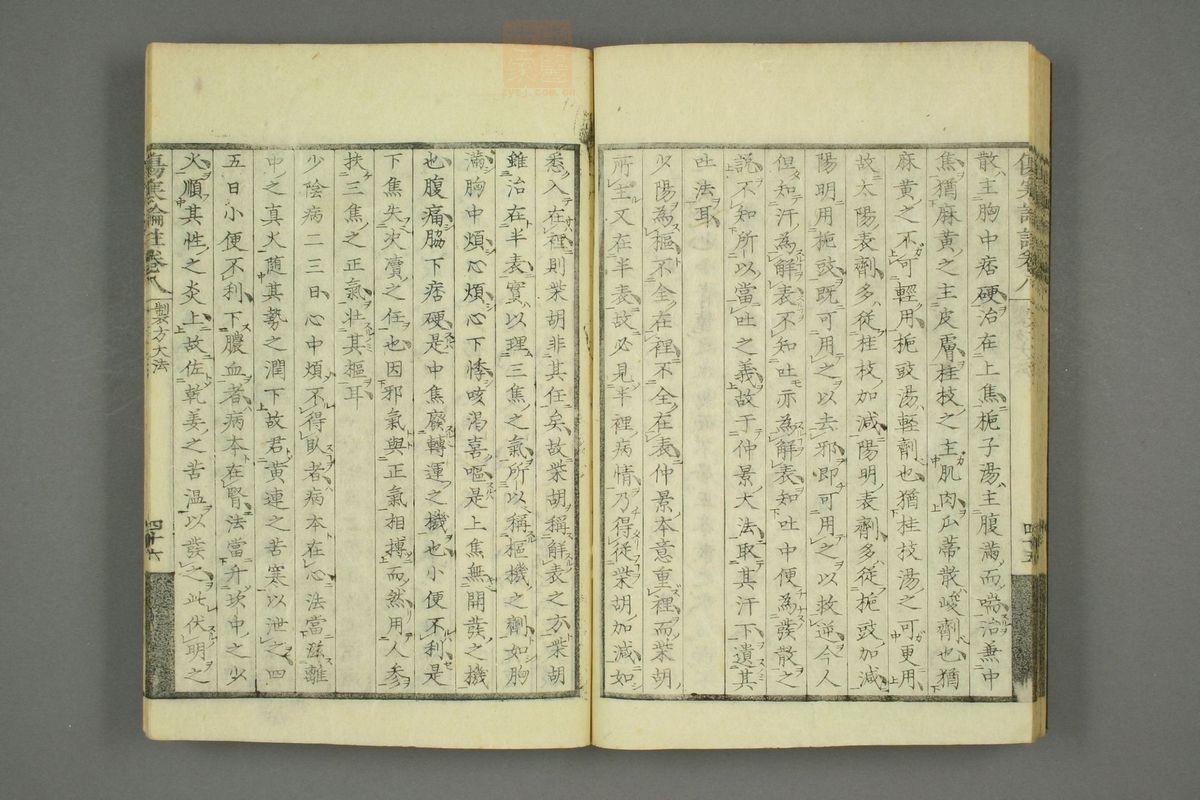 散主胸中痞硬治在上焦梔子湯主腹滿而喘治兼中
焦猶麻黄之主皮膚桂枝之主肌肉瓜蒂散峻劑也猶
麻黄之不可輕用梔豉湯輕劑也猶桂枝湯之可更用
故太陽表劑多從桂枝加減陽明表劑多從梔豉加減
陽明用梔豉既可用之以去邪即可用之以救逆今人
但知汗為解表不知吐亦為解表知吐中便為發散之
說不知所以當吐之義故于仲景大法取其汗下遺其
吐法耳
少陽為樞不全在裡不全在表仲景本意重裡而柴胡
所主又在半表故必見半裡病情乃得從柴胡加減如
悉入在裡則柴胡非其任矣故柴胡稱解表之方柴胡
雖治在半表實以理三焦之氣所以稱樞機之劑如胸
滿胸中煩心煩心下悸咳渴喜嘔是上焦無開發之機
也腹痛脇下痞硬是中焦廢轉運之機也小便不利是
下焦失决瀆之任也因邪氣與正氣相搏而然用人參
扶三焦之正氣壯其樞耳
少陰病二三日心中煩不得臥者病本在心法當滋離
中之真火隨其勢之潤下故君黄連之苦寒以泄之四
五日小便不利下膿血者病本在腎法當升坎中之少
火順其性之炎上故佐乾姜之苦温以發之此伏明之
傷寒論註卷八
製方大法
四十六
四十五